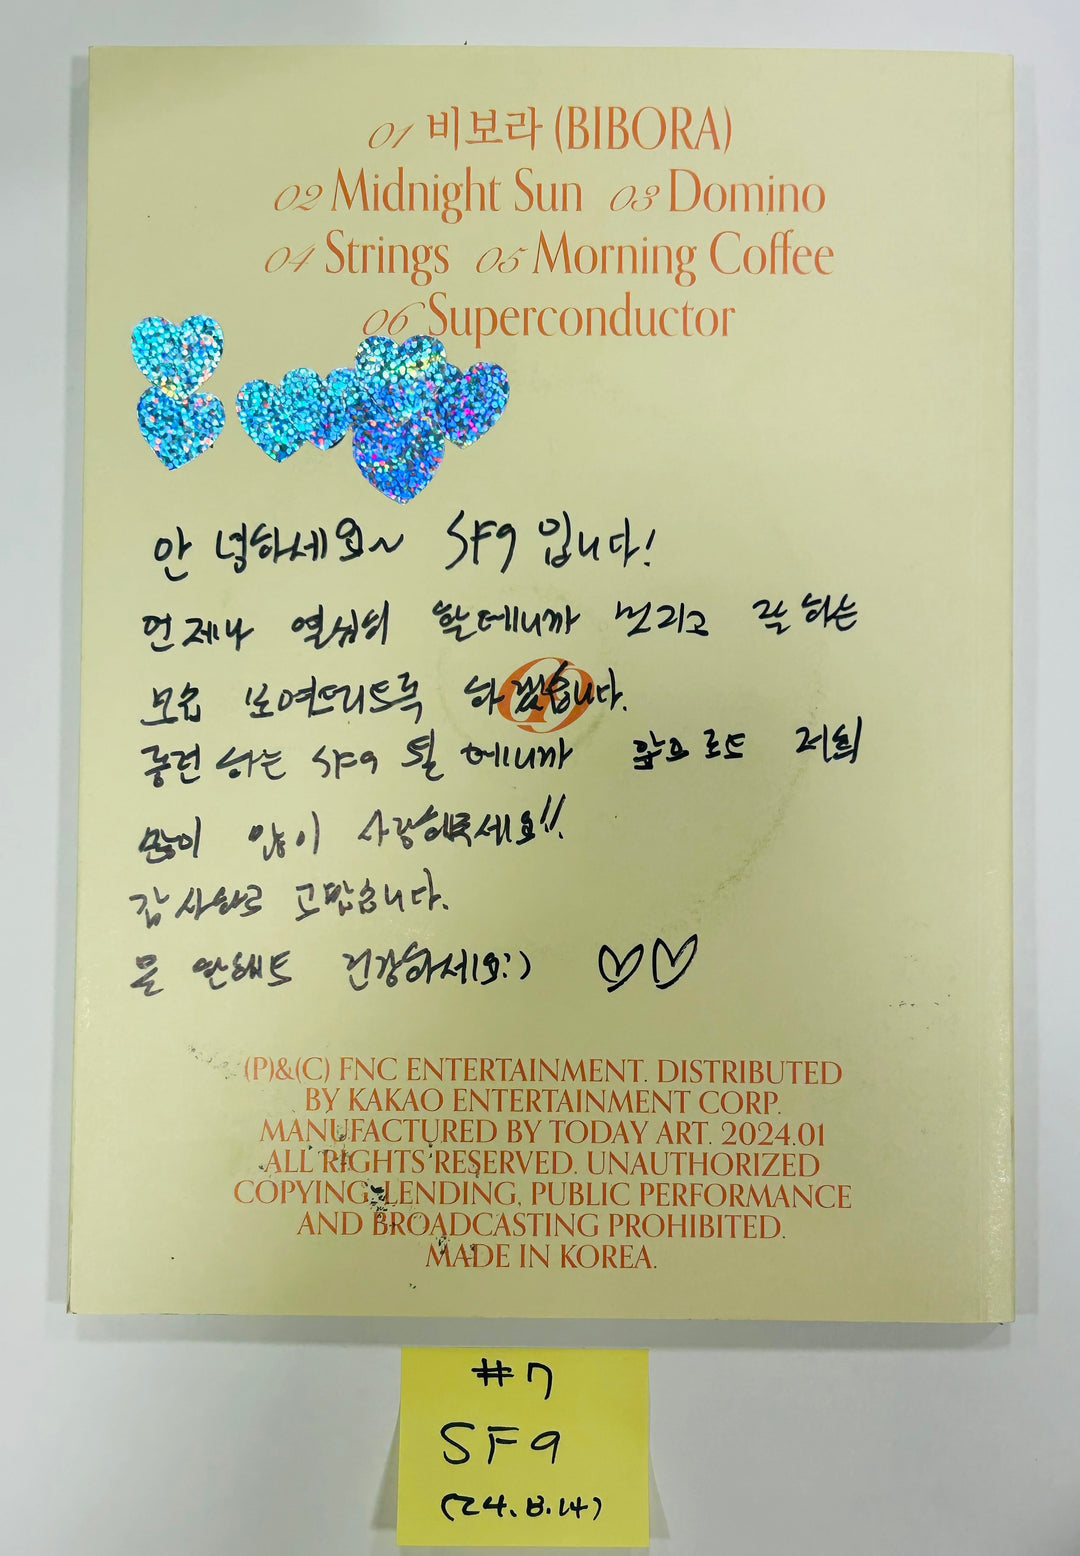 01 비보라 (BIBORA)
02 Midnight Sun 03 Domino
04 Strings 05 Morning Coffee
06 Superconductor
안녕하세요~ SF9 입니다!
언제나 열심히 할테니까 멋지고 잘 하는
모습 보여드리도록 하겠습니다.
하는 SF9 될 테니까 앞으로도 저희
많이 많이 사랑해주세요!!
감사하고 고맙습니다.
건강하세요:)
(P)&(C) FNC ENTERTAINMENT. DISTRIBUTED
BY KAKAO ENTERTAINMENT CORP.
MANUFACTURED BY TODAY ART. 2024.01
ALL RIGHTS RESERVED. UNAUTHORIZED
COPYING, LENDING, PUBLIC PERFORMANCE
AND BROADCASTING PROHIBITED.
MADE IN KOREA.
#7
SF9
(24.8.14)